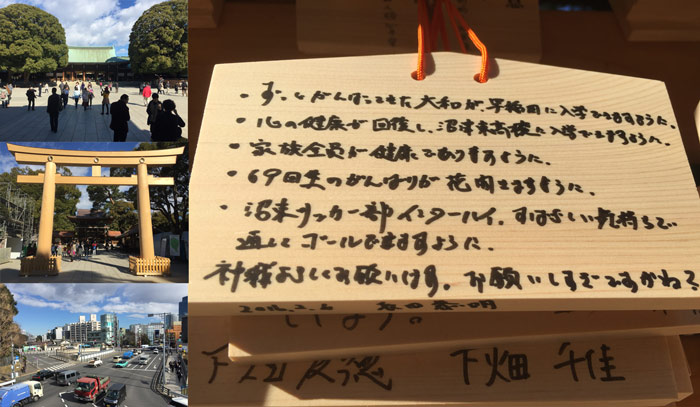 ・ずっとがんばってきた大和が、早稲田に入学できますように。
・心の健康が回復し、沼津東高校に入学できますように。
・家族全員が健康でありますように。
・69回生のがんばりが花開きますように。
・沼東サッカー部インターハイ、すばらしい気持ちで
通してゴールできますように。
神様よろしくお願いします。お願いしすぎですかね?
下畑 千佳